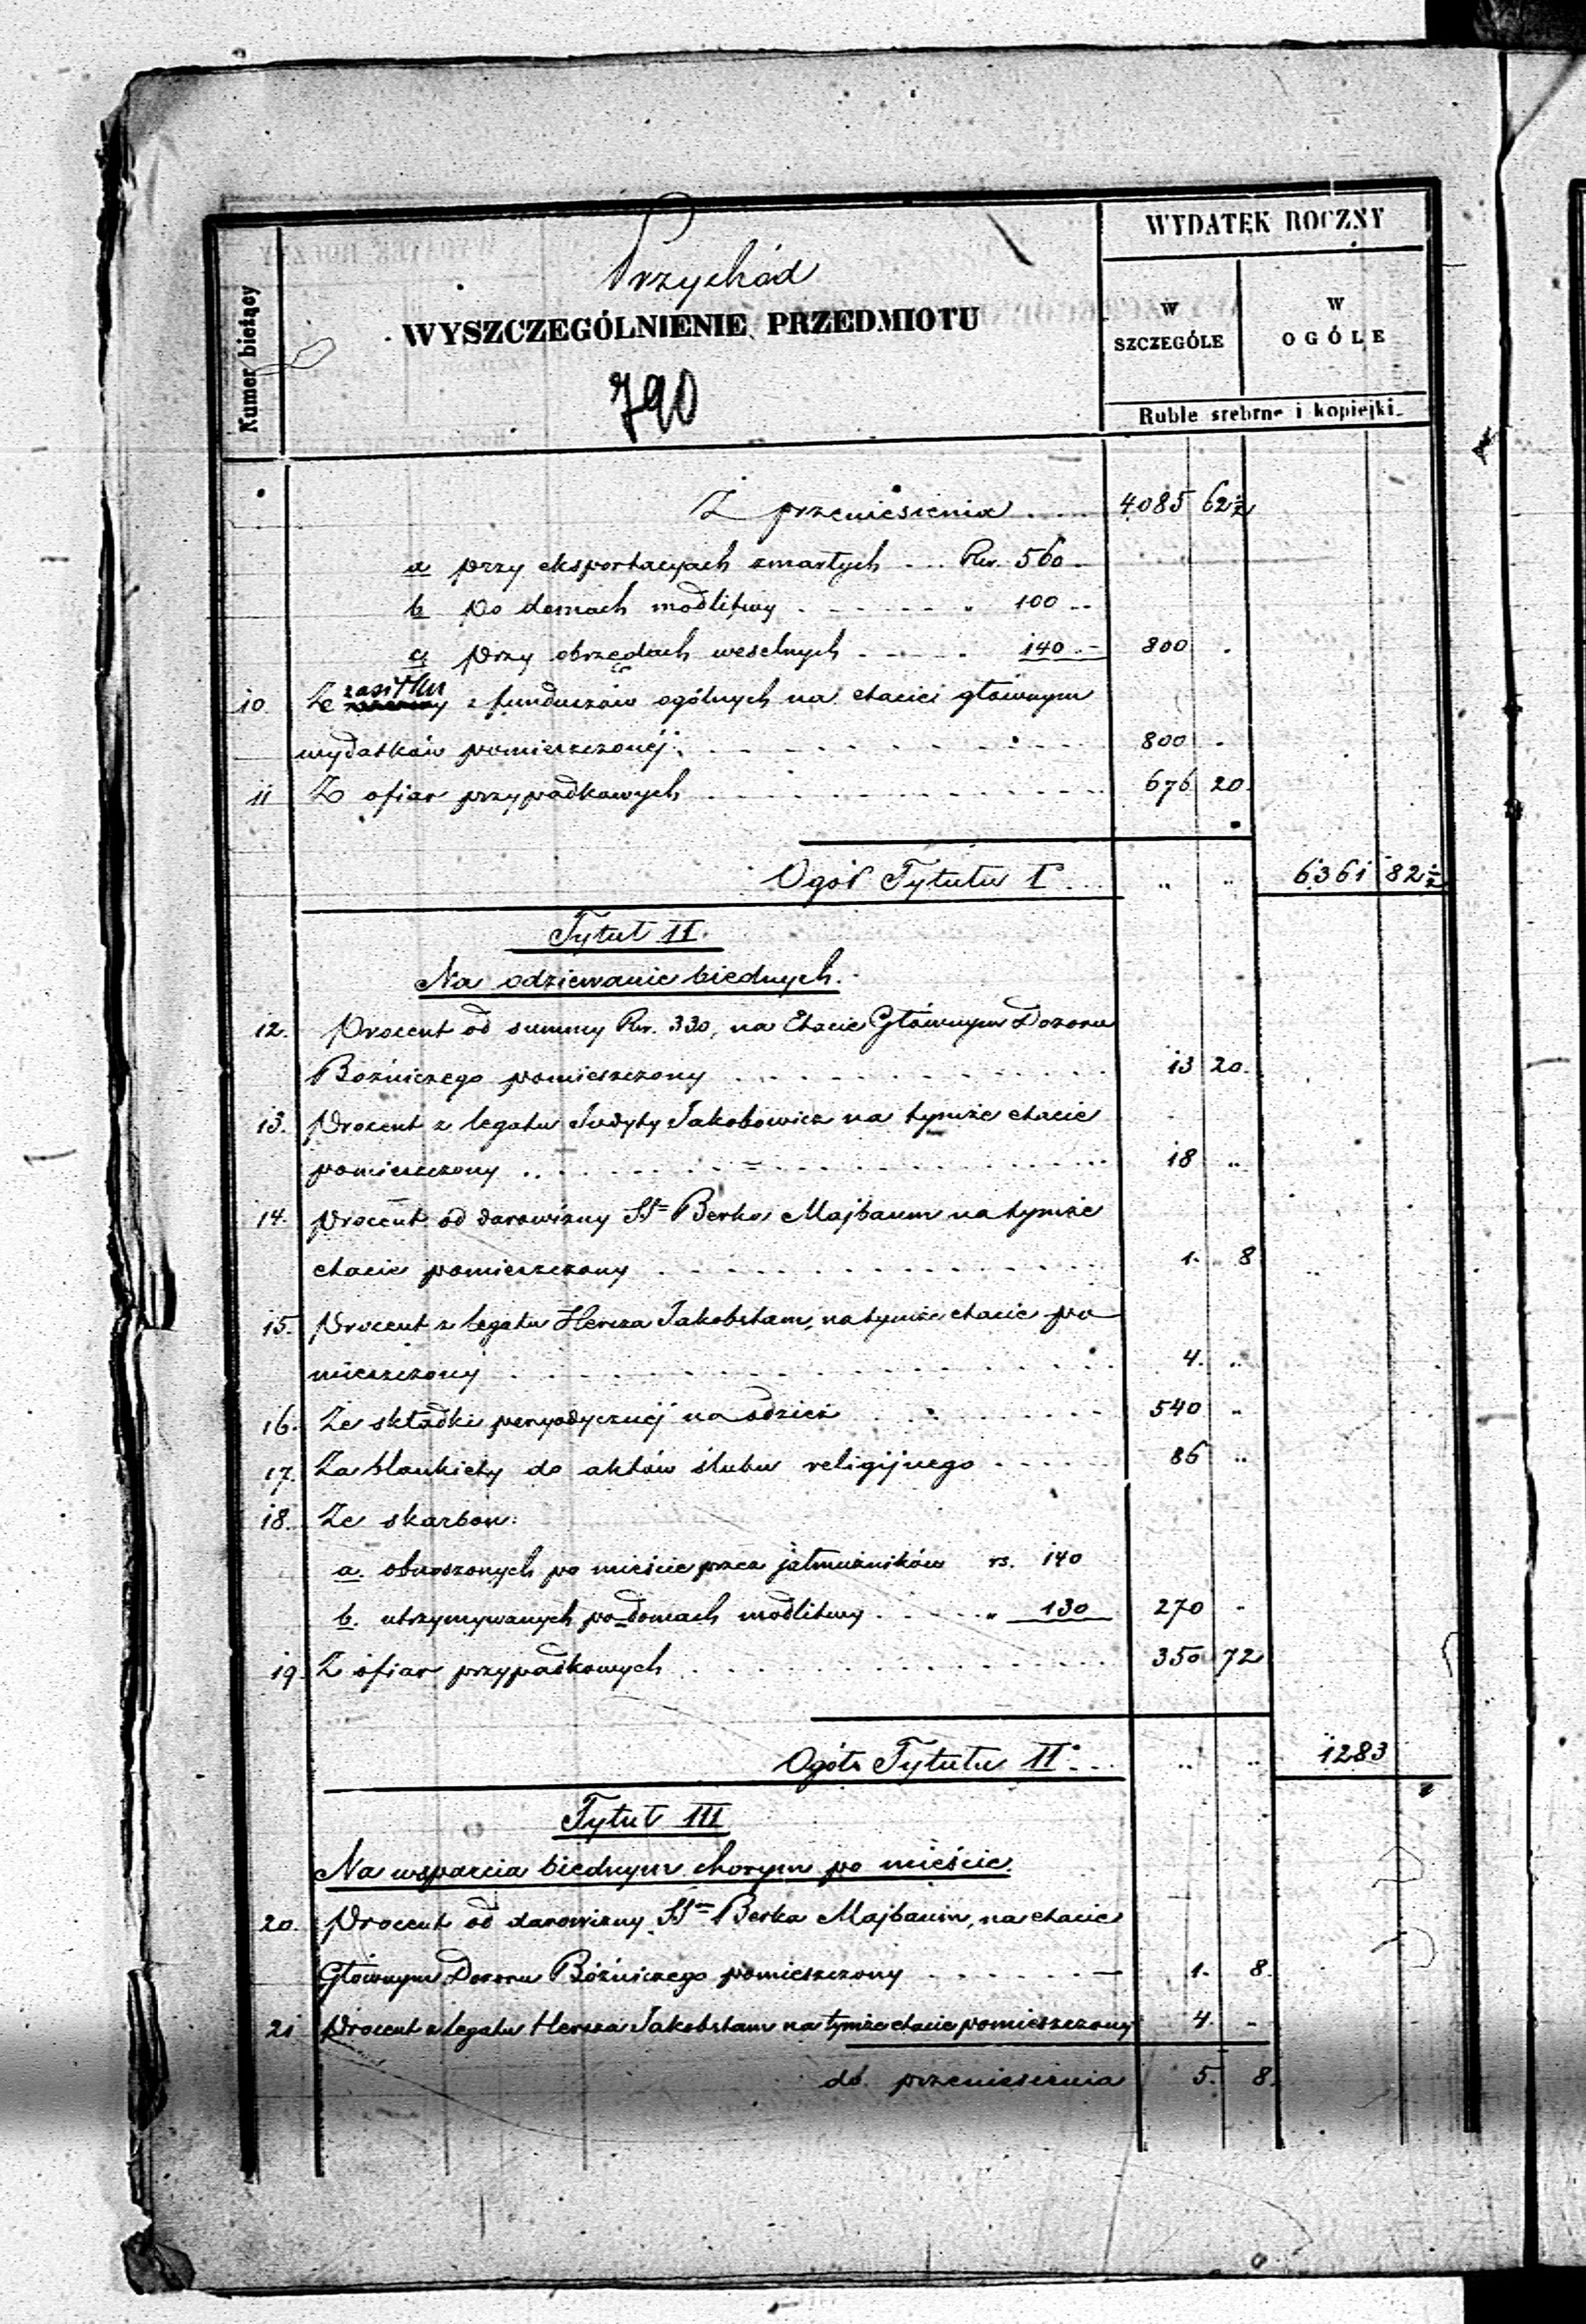 Przychód
WYDATEK ROCZNY
Numer bieżący
WYSZCZEGÓLNIENIE PRZEDMIOTU
W SZCZEGÓLE
W OGÓLE
790
Ruble srebrne i kopiejki
Z przeniesienia .... 4085 62½
a przy eksportacyach zmarłych ... Rsr. 560 -
b Po domach modlitwy . - - - - - „ 100 --
c przy obrzędach weselnych - - - - . 140 .- 800 .
10 Ze zasiłku z funduszów ogólnych na etacie głównym
wydatków pomieszczonej . - - - - - 800 -
11 Z ofiar przypadkowych . - - - - - 676 20.
Ogół Tytułu I . . . „ „ 6361 82½
Tytuł II.
Na odziewanie biednych.
12. Procent od summy Rsr. 330, na Etacie Głównym Dozoru
Bożniczego pomieszczony . . . . . 13 20.
13. Procent z legatu Judyty Jakobowicz na tymże etacie
pomieszczony . . . . . 18 „
14. Procent od darowizny St= Berka Majbaum na tymże
etacie pomieszczony . . . . . 1. 8
15. Procent z legatu Hersza Jakobstam, na tymże etacie po
mieszczony . . . . . 4. „
16. Ze składki peryodycznéj na odzież . . . . 540 „
17. Za blankiety do aktów ślubu religijnego . . . . 86 „
18. Ze skarbon:
a. obnoszonych po mieście przez jałmużników rs. 140
b. utrzymywanych po domach modlitwy . - - - „ 130 270 -
19. Z ofiar przypadkowych . . . . . 350 72
Ogół Tytułu II . . . „ „ 1283
Tytuł III
Na wsparcia biednym chorym po mieście.
20. Procent od darowizny St= Berka Majbaum, na etacie
Głównym Dozoru Bóżniczego pomieszczony . - - - - 1. 8.
21 Procent z legatu Hersza Jakobstam na tymże etacie pomieszczony 4. -
do przeniesienia 5. 8.